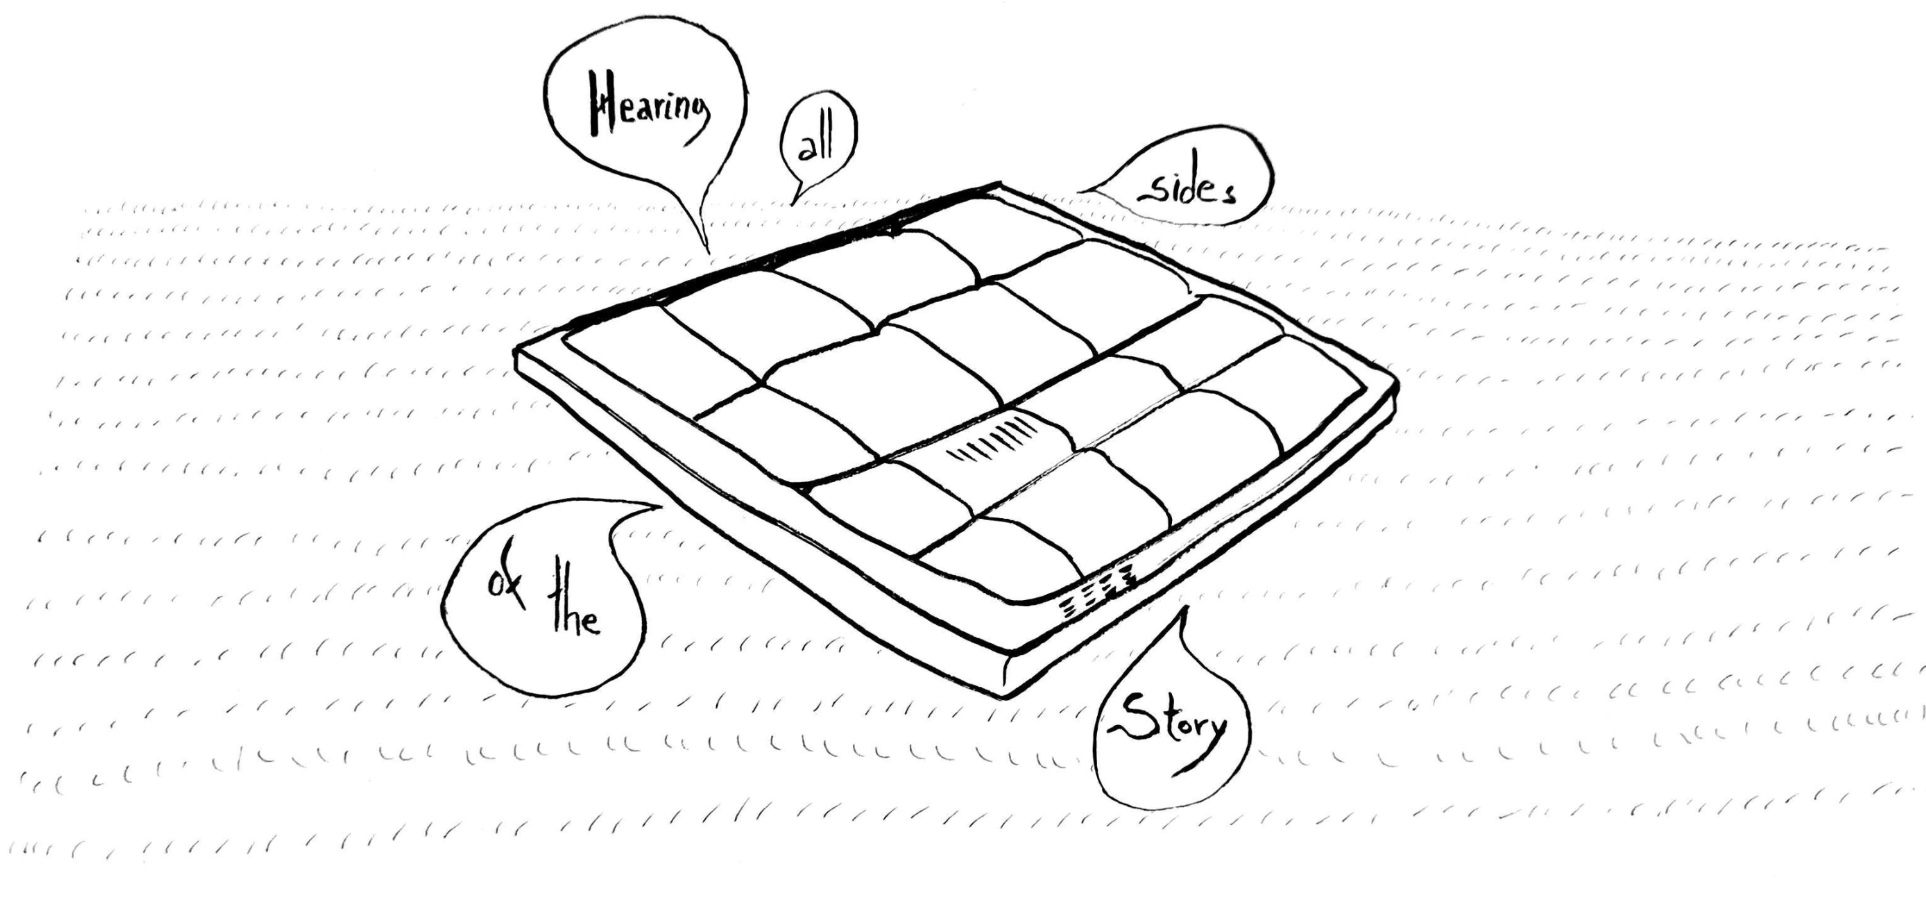 Hearing
all
sides
of the
Story